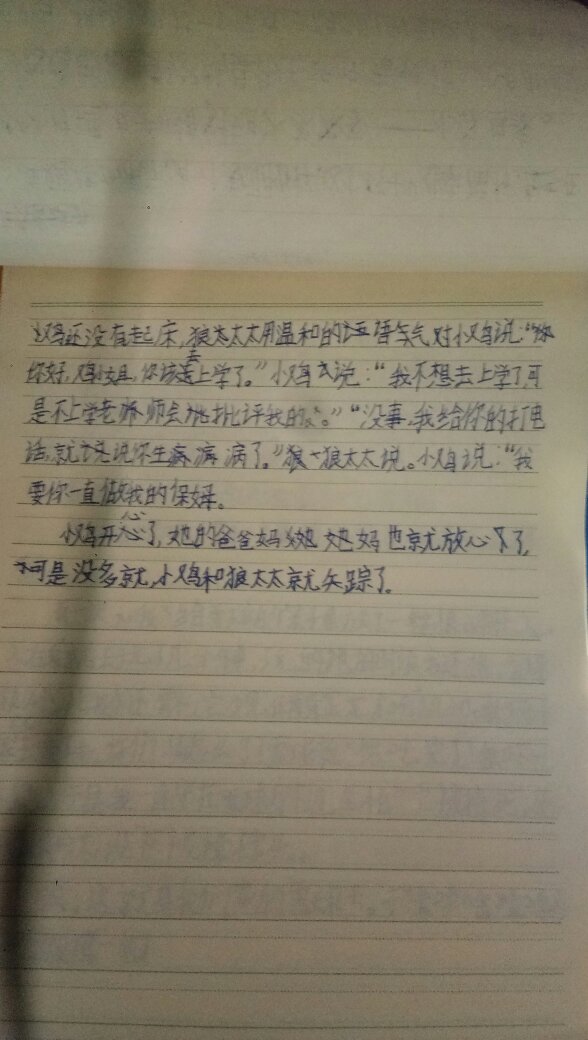 小鸡还没有起床，狼太太太用温和的语气对小鸡说：“你
你好，鸡小姐，你该去上学了。”小鸡说：“我不想去上学了，可
是不上学老师会批评我的。”“没事，我给你的打电
话，就说你生病了。”狼太太说。小鸡说：“我
要你一直做我的保姆。
小鸡开心了，她的爸爸妈妈也就放心了，
可是没多就，小鸡和狼太太就失踪了。